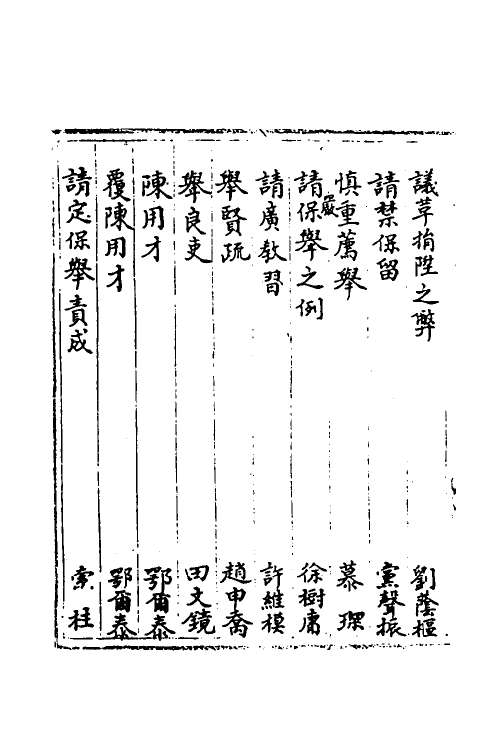 議革捐陞之弊 劉蔭樞
請禁保留 党聲振
慎重薦舉 慕琛
請嚴保舉之例 徐樹庸
請廣教習 許維模
舉賢疏 趙申喬
舉良吏 田文鏡
陳用才 鄂爾泰
覆陳用才 鄂爾泰
請定保舉責成 索柱